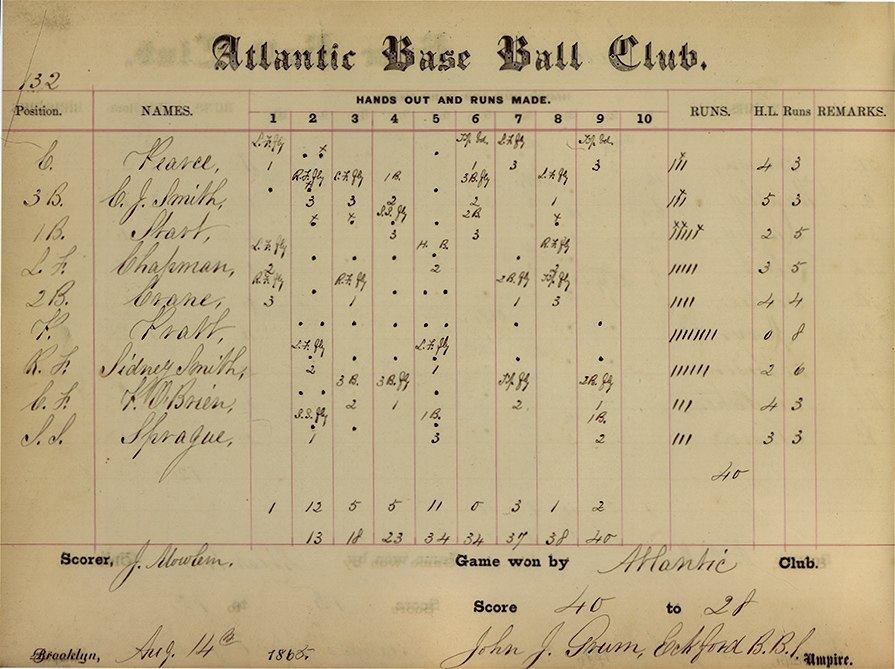 Atlantic Base Ball Club.
132
HANDS OUT AND RUNS MADE.
Position. NAMES. 1 2 3 4 5 6 7 8 9 10 RUNS. H.L. Runs REMARKS.
L.F. fly L.F. fly
C. Pearce, 1 1 3 3 4 3
R.F. fly C.F. fly 1 B. 3 B. fly L.F. fly
3 B. C. J. Smith, 3 3 2 2 1 5 3
S.S. fly 2 B.
1 B. Start, 3 3 2 5
L.F. fly H. B. R.F. fly
L. F. Chapman, 2 2 2 3 5
R.F. fly R.F. fly 2 B. fly
2 B. Crane, 3 1 1 3 4 4
P. Pratt, 0 8
L.F. fly L.F. fly
R. F. Sidney Smith, 2 1 2 6
3 B. 3 B. fly 2 B. fly
C. F. P. O'Brien, 2 1 2 1 4 3
S.S. fly 1 B. 1 B.
S. S. Sprague, 1 3 2 3 3
40
1 12 5 5 11 0 3 1 2
13 18 23 34 34 37 38 40
Scorer, J. Mowlem. Game won by Atlantic Club.
Score 40 to 28
Brooklyn, Aug. 14th 1865. John J. Grum, Eckford B. B. Umpire.